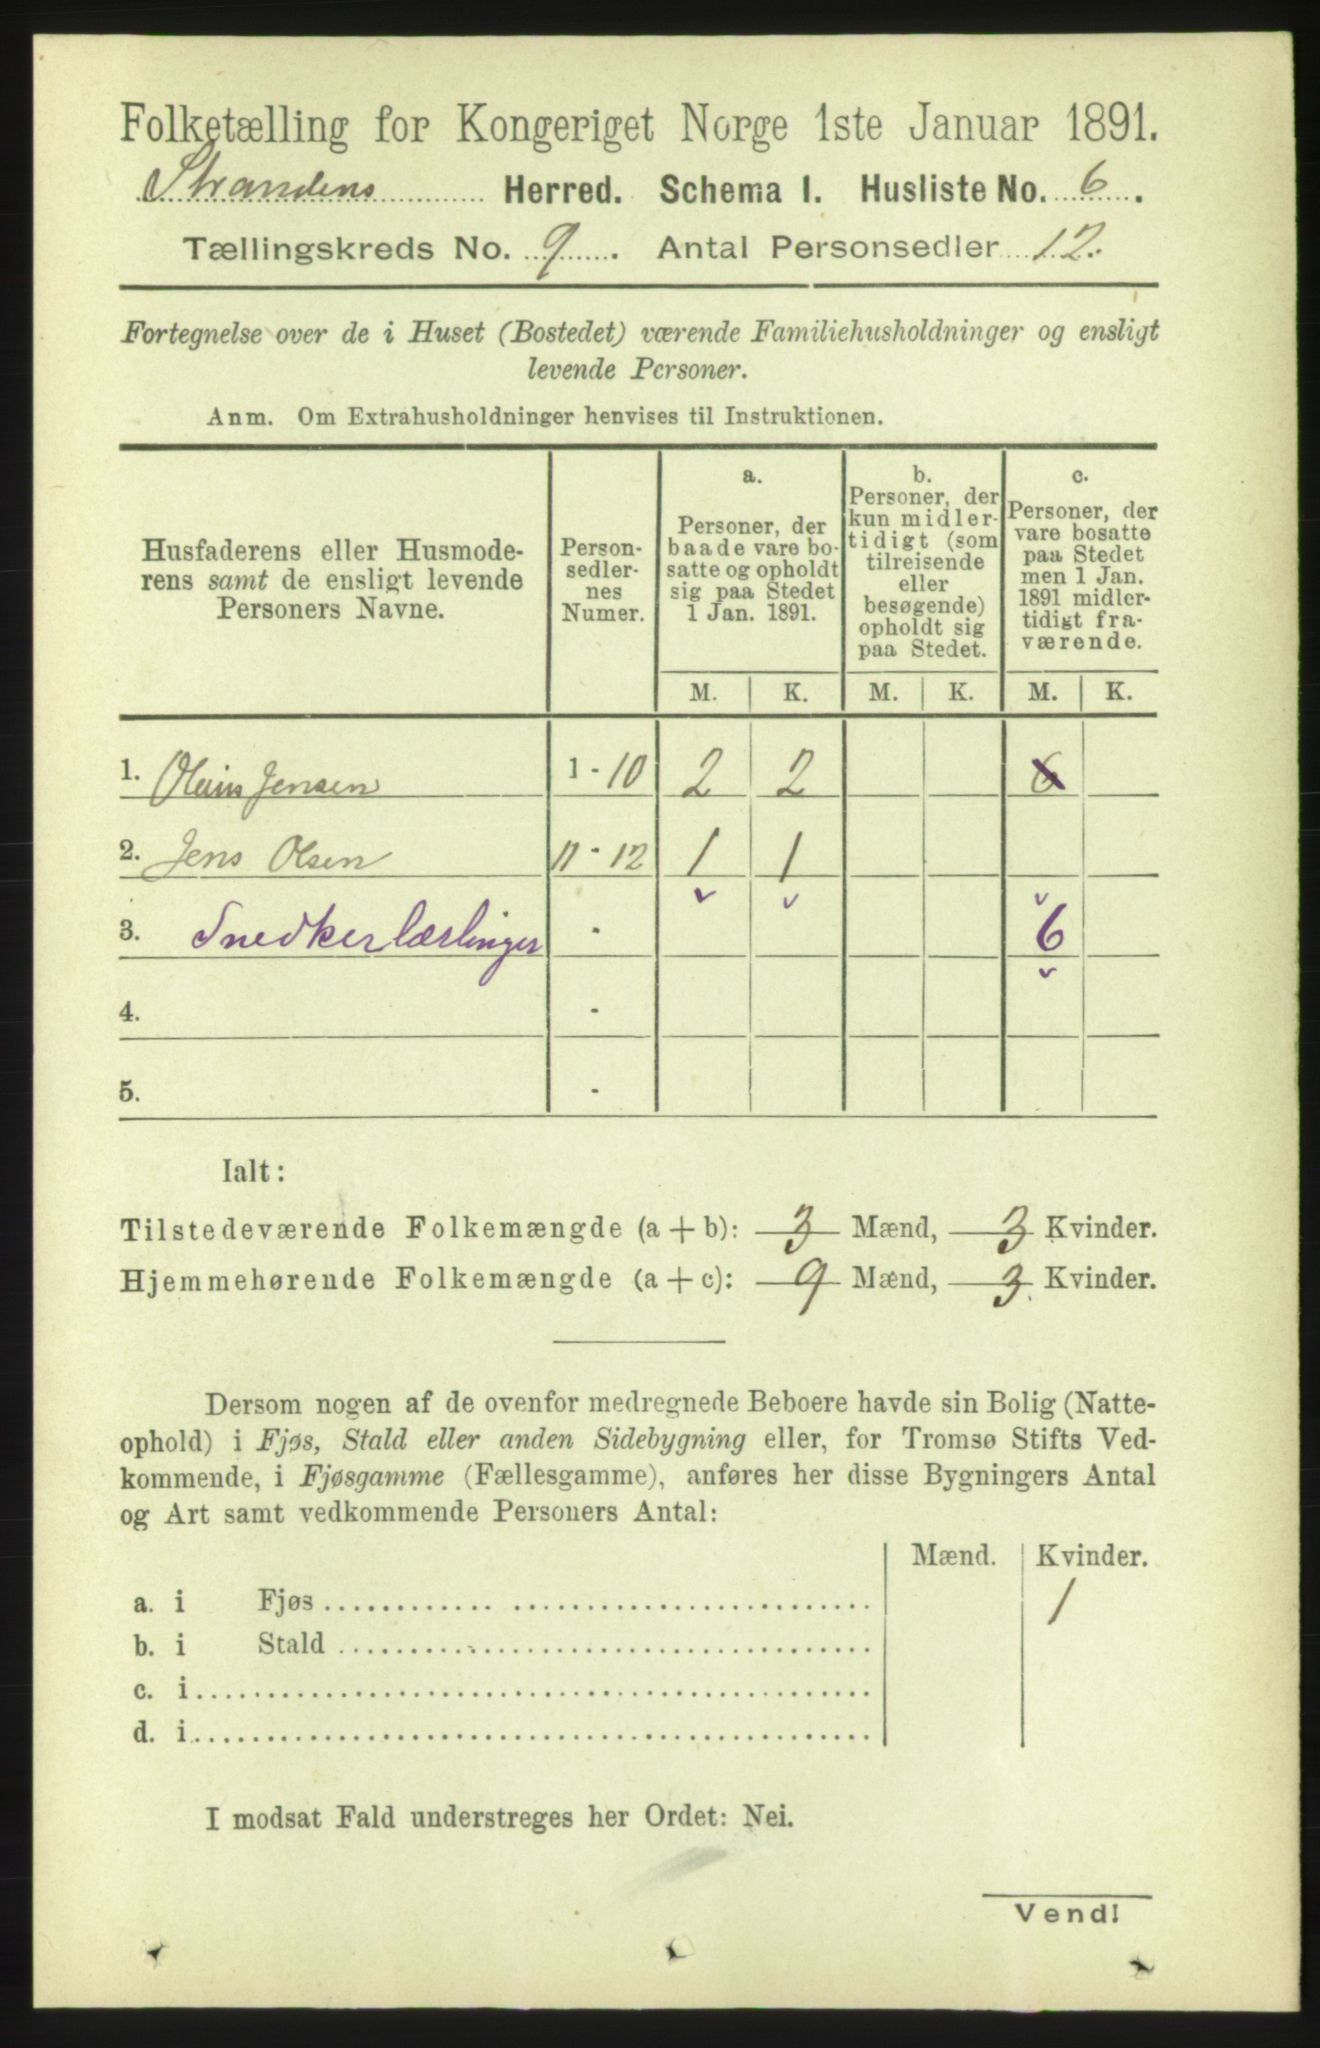 Folketælling for Kongeriget Norge 1ste Januar 1891.
Strandens Herred. Schema I. Husliste No. 6.
Tællingskreds No. 9. Antal Personsedler 12.
Fortegnelse over de i Huset (Bostedet) værende Familiehusholdninger og ensligt
levende Personer.
Anm. Om Extrahusholdninger henvises til Instruktionen.
Husfaderens eller Husmode-
rens samt de ensligt levende
Personers Navne.
Person-
sedler-
nes
Numer.
a.
Personer, der
baade vare bo-
satte og opholdt
sig paa Stedet
1 Jan. 1891.
b.
Personer, der
kun midler-
tidigt (som
tilreisende
eller
besøgende)
opholdt sig
paa Stedet.
c.
Personer, der
vare bosatte
paa Stedet
men 1 Jan.
1891 midler-
tidigt fra-
værende.
M. K. M. K. M. K.
1. Olaus Jensen 1 - 10 2 2 6
2. Jens Olsen 11 - 12 1 1
3. Snedkerlærlinger - 6
4. -
5. -
Ialt:
Tilstedeværende Folkemængde (a + b): 3 Mænd, 3 Kvinder.
Hjemmehørende Folkemængde (a + c): 9 Mænd, 3 Kvinder.
Dersom nogen af de ovenfor medregnede Beboere havde sin Bolig (Natte-
ophold) i Fjøs, Stald eller anden Sidebygning eller, for Tromsø Stifts Ved-
kommende, i Fjøsgamme (Fællesgamme), anføres her disse Bygningers Antal
og Art samt vedkommende Personers Antal:
Mænd. Kvinder.
a. i Fjøs 1
b. i Stald
c. i
d. i
I modsat Fald understreges her Ordet: Nei.
Vend!